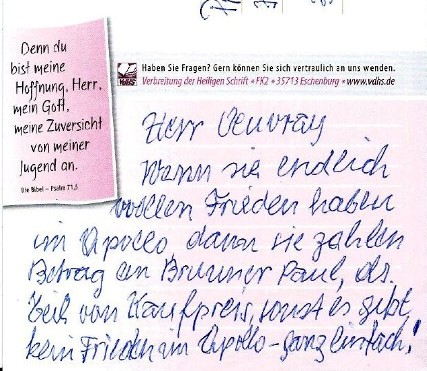 Denn du
bist meine
Hoffnung, Herr,
mein Gott,
meine Zuversicht
von meiner
Jugend an.
Die Bibel – Psalm 71,5
Haben Sie Fragen? Gern können Sie sich vertraulich an uns wenden.
Verbreitung der Heiligen Schrift • FK2 • 35713 Eschenburg • www.vdhs.de
Herr
Wenn sie endlich
wollen Frieden haben
im Apollo dann sie zahlen
Betrag an Brunner Paul, als
Teil von Kaufpreis, sonst es gibt
kein Frieden im Apollo - ganz einfach!